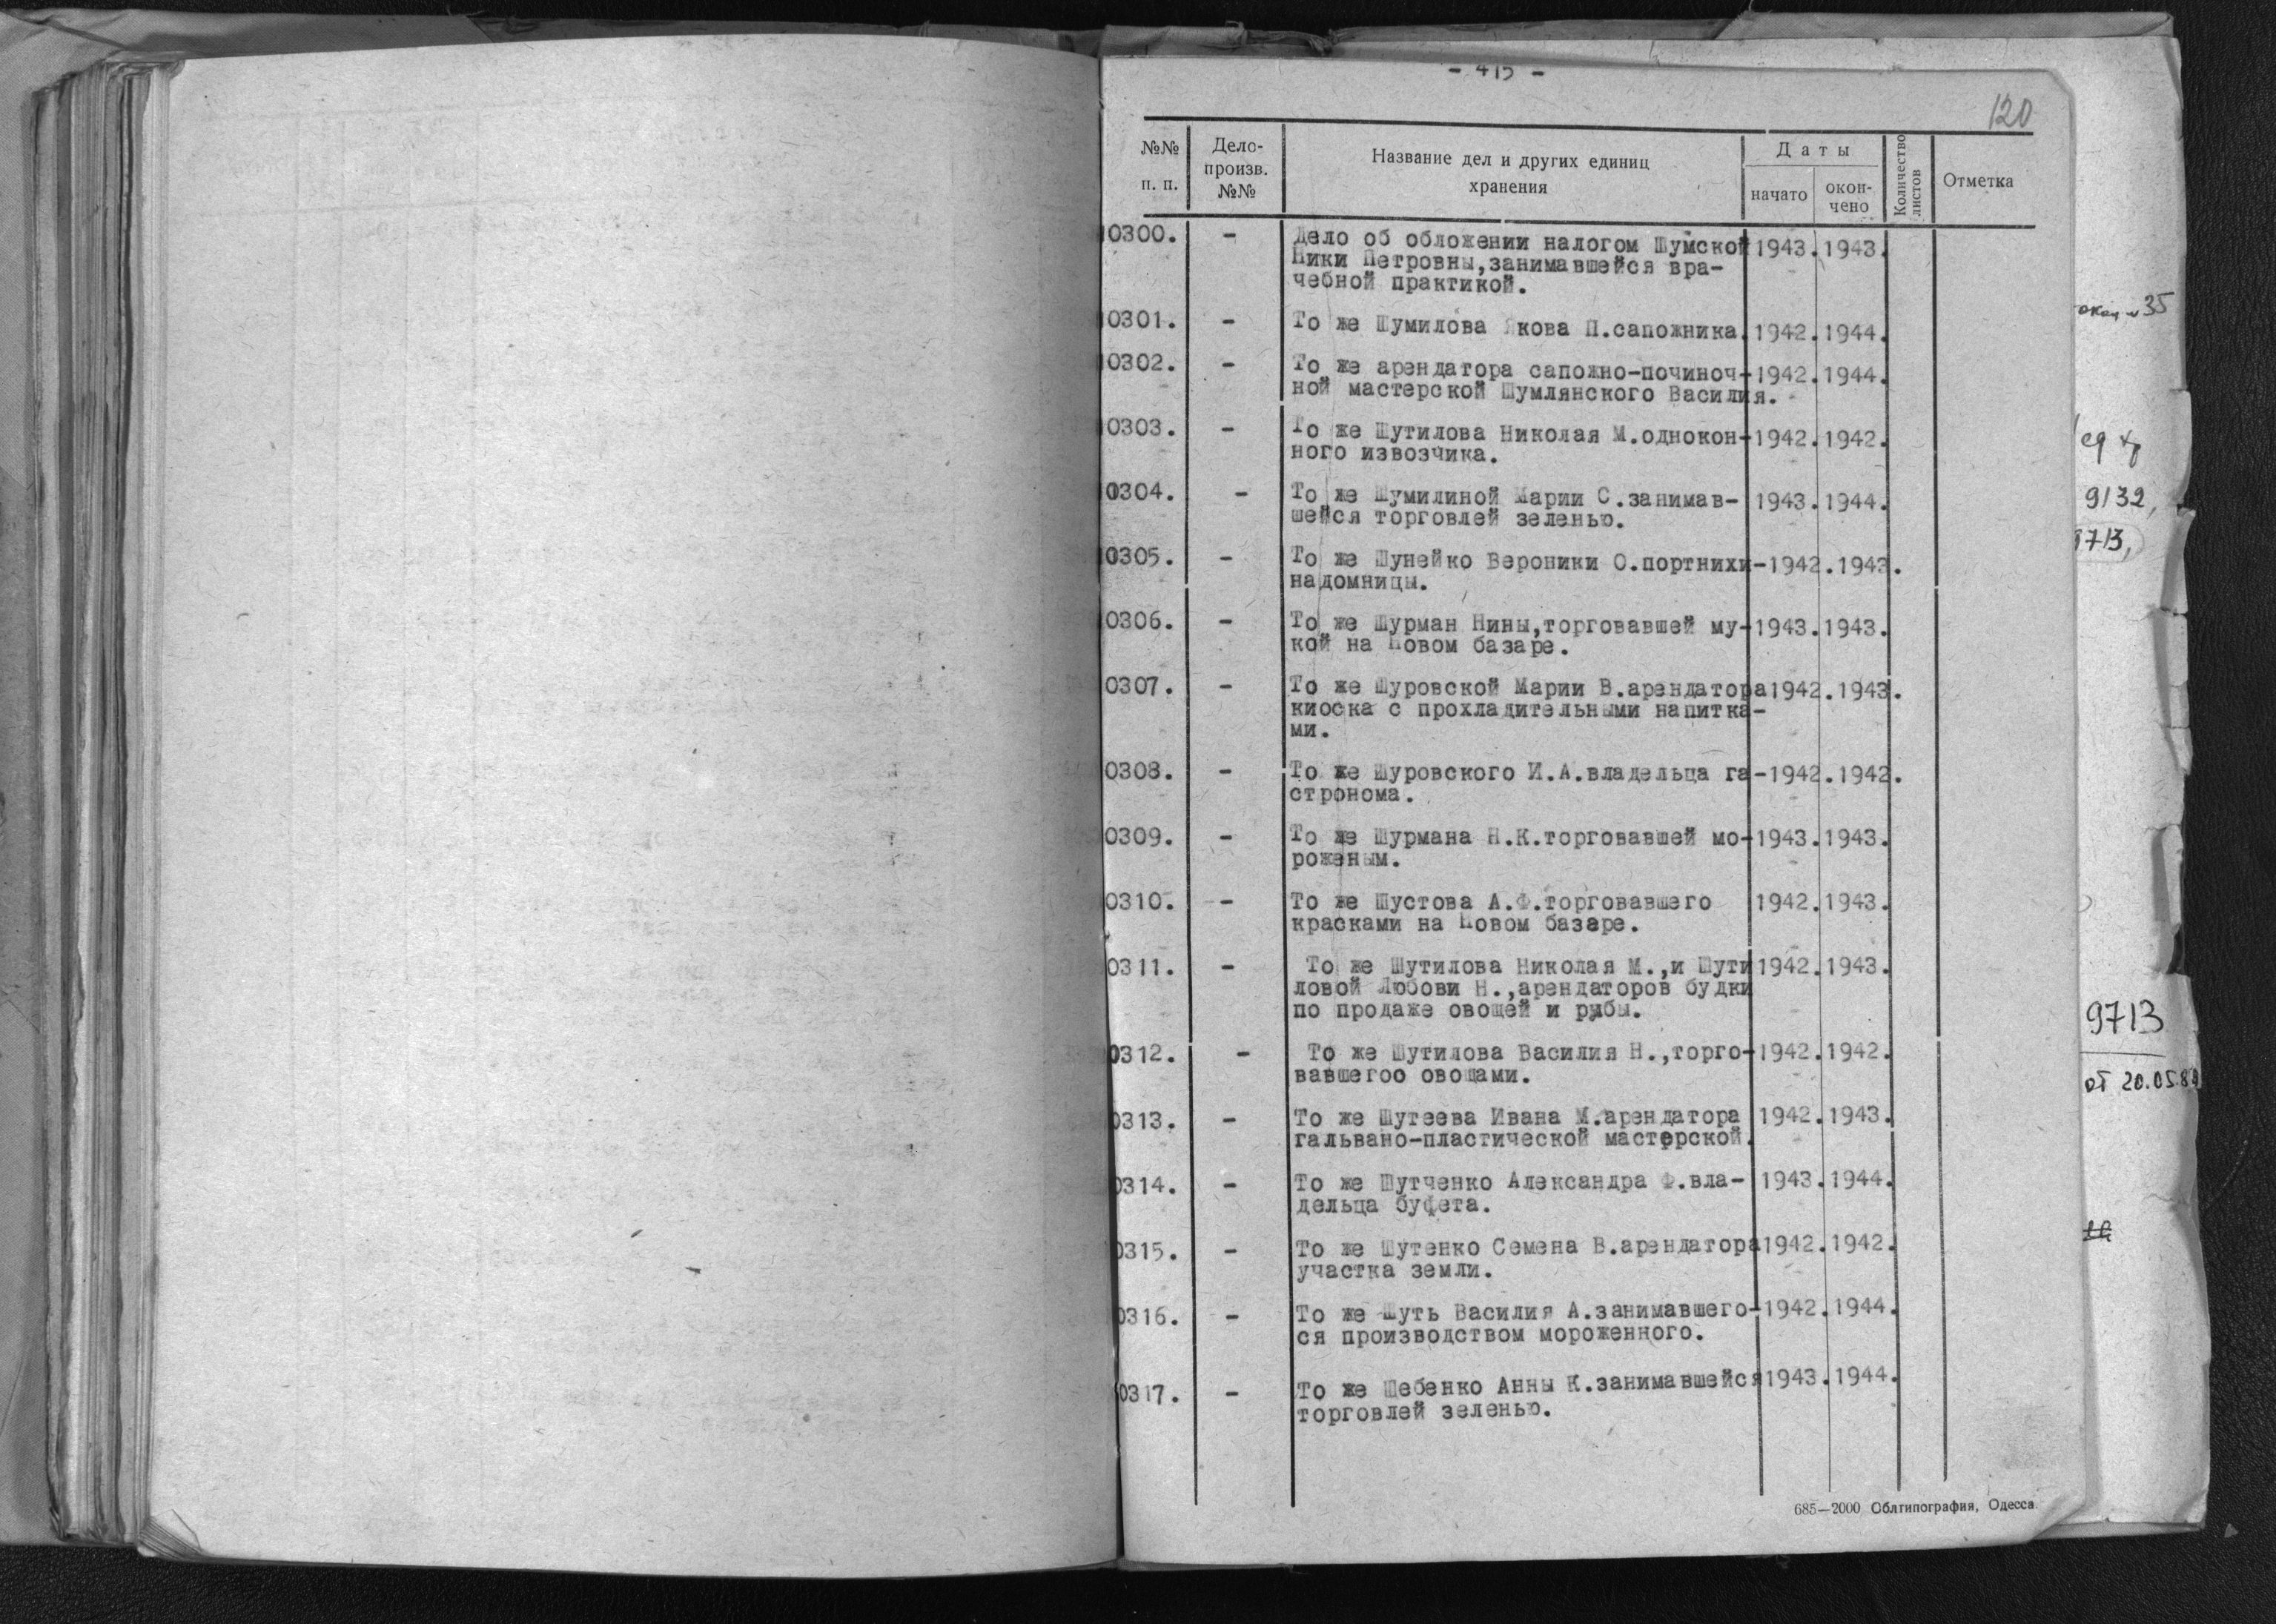 - 415 -
120
№№ п. п.
Дело-произв. №№
Название дел и других единиц хранения
Даты
начато
окон-чено
Количество листов
Отметка
10300. - Дело об обложении налогом Шумской 1943. 1943.
Ники Петровны,занимавшейся вра-
чебной практикой.
10301. - То же Шумилова Якова П.сапожника. 1942. 1944.
10302. - То же арендатора сапожно-починоч- 1942. 1944.
ной мастерской Шумлянского Василия.
10303. - То же Шутилова Николая М.однокон- 1942. 1942.
ного извозчика.
10304. - То же Шумилиной Марии С.занимав- 1943. 1944.
шейся торговлей зеленью.
10305. - То же Шунейко Вероники О.портнихи- 1942. 1943.
надомницы.
0306. - То же Шурман Нины,торговавшей му- 1943. 1943.
кой на Новом базаре.
0307. - То же Шуровской Марии В.арендатора 1942. 1943.
киоска с прохладительными напитка-
ми.
0308. - То же Шуровского И.А.владельца га- 1942. 1942.
стронома.
0309. - То же Шурмана Н.К.торговавшей мо- 1943. 1943.
роженым.
0310. - То же Шустова А.Ф.торговавшего 1942. 1943.
красками на Новом базаре.
0311. - То же Шутилова Николая М.,и Шути 1942. 1943.
ловой Любови Н.,арендаторов будки
по продаже овощей и рыбы.
0312. - То же Шутилова Василия Н.,торго- 1942. 1942.
вавшегоо овощами.
0313. - То же Шутеева Ивана М.арендатора 1942. 1943.
гальвано-пластической мастерской.
0314. - То же Шутченко Александра Ф.вла- 1943. 1944.
дельца буфета.
0315. - То же Шутенко Семена В.арендатора 1942. 1942.
участка земли.
0316. - То же Шуть Василия А.занимавшего- 1942. 1944.
ся производством мороженного.
0317. - То же Шебенко Анны К.занимавшейся 1943. 1944.
торговлей зеленью.
685—2000 Облтипография, Одесса.
35
9132,
9713,
9713
от 20.05.8